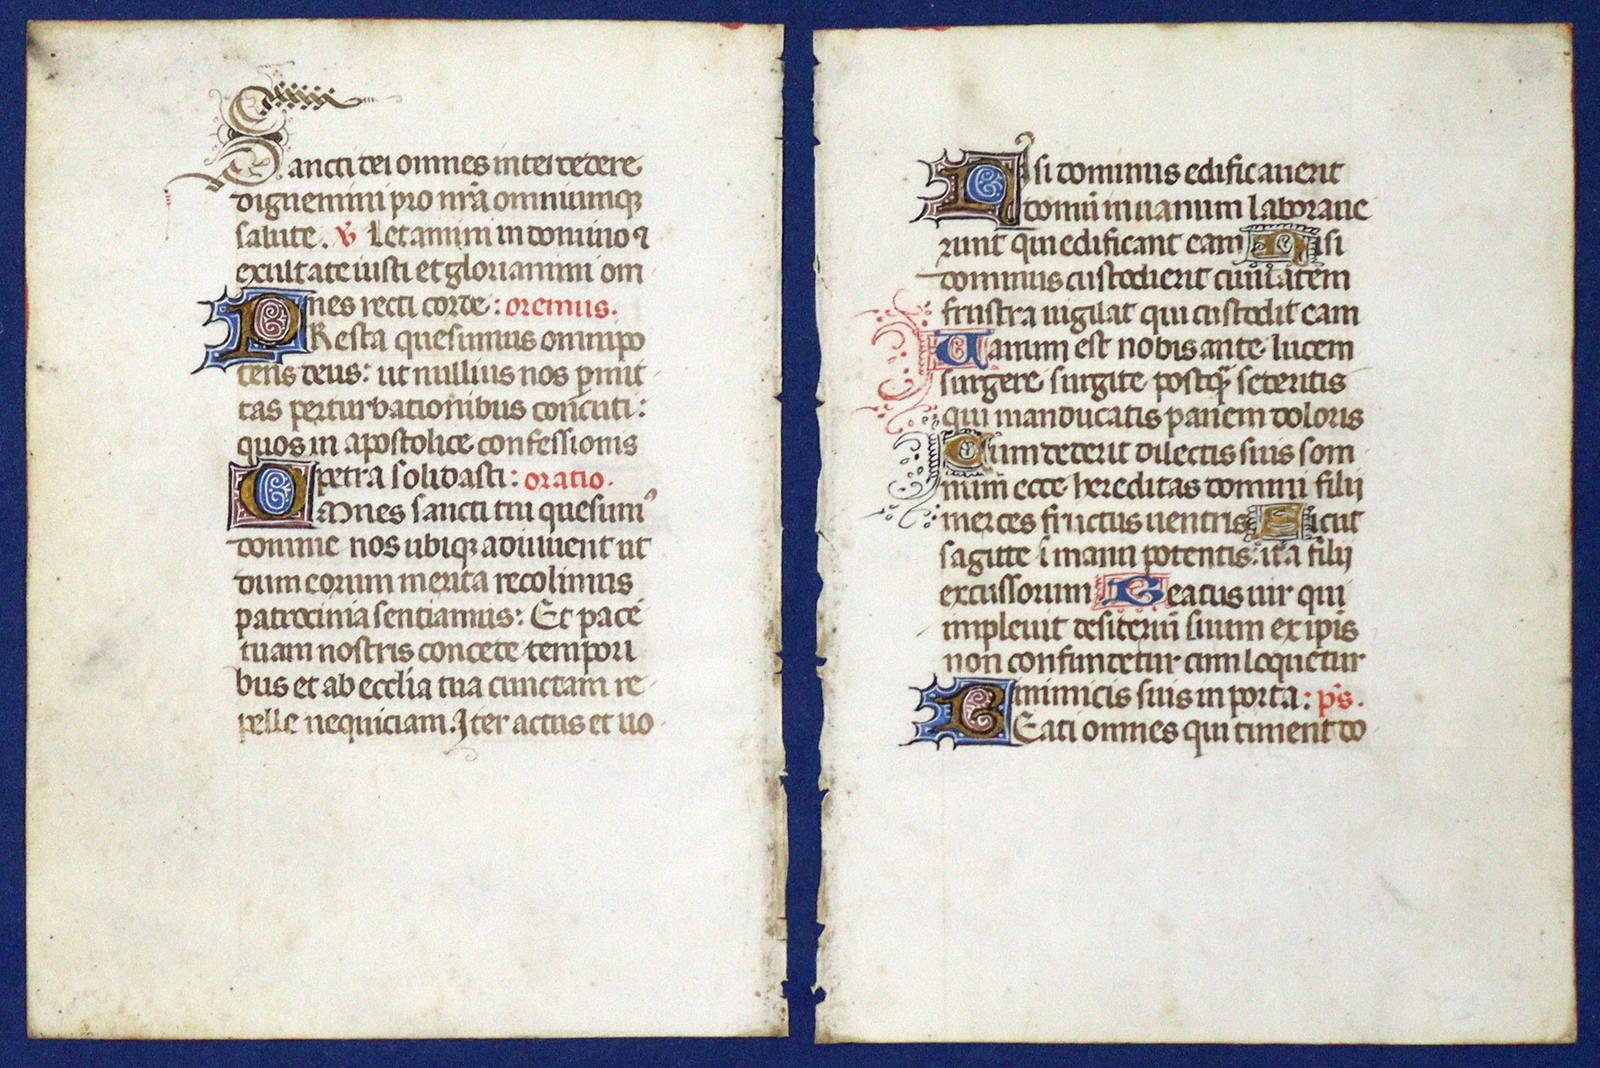 Sancti dei omnes intercedere
dignemini pro nr̄a omniumqꝫ
salute. v̄ Letamini in domino ⁊
exultate iusti et gloriamini om
nes recti corde: oremus.
PResta quesumus omnipo
tens deus: ut nullius nos ꝑmit
tas perturbationibus concuti:
quos in apostolice confessionis
petra solidasti: oratio.
OMnes sancti tui quesumꝰ
domine nos ubiqꝫ adiuuent ut
dum eorum merita recolimus
patrocinia sentiamus: Et pacē
tuam nostris concede tempori
bus et ab ecclīa tua cunctam re
pelle nequiciam. Iter actus et uo
NIsi dominus edificauerit
domū in uanum laboraue
runt qui edificant eam Nisi
dominus custodierit ciuitatem
frustra uigilat qui custodit eam
Uanum est nobis ante lucem
surgere surgite postqꝫ sederitis
qui manducatis panem doloris
Cum dederit dilectis suis som
num̄ ecce hereditas domini filij
merces fructus uentris Sicut
sagitte ī manu potentis: ita filij
excussorum Beatus uir qui
impleuit desideriū suum ex ipīs
non confundetur cum loquetur
inimicis suis in porta: p̄s.
BEati omnes qui timent do